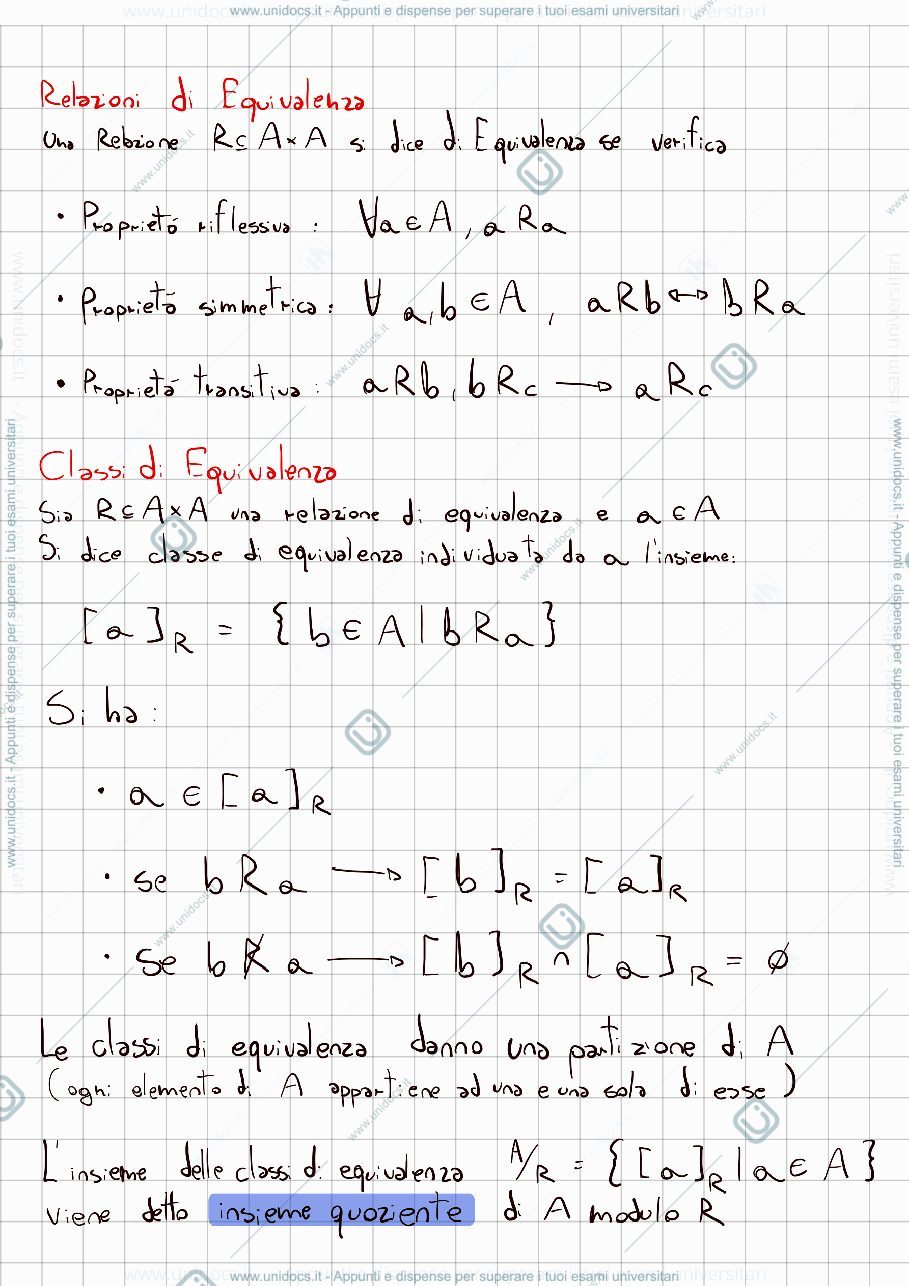 www.unidocs.it - Appunti e dispense per superare i tuoi esami universitari
Relazioni di Equivalenza
Una Relazione R⊆A×A si dice di Equivalenza se verifica
• Proprietá riflessiva : ∀a∈A, aRa
• Proprietá simmetrica : ∀ a,b ∈A , aRb ↔ bRa
• Proprietá transitiva : aRb, bRc → aRc
Classi di Equivalenza
Sia R⊆A×A una relazione di equivalenza e a∈A
Si dice classe di equivalenza individuata da a l'insieme:
[a]R = {b∈A | bRa}
Si ha :
• a ∈ [a]R
• se bRa → [b]R = [a]R
• se bR̸a → [b]R ∩ [a]R = ∅
Le classi di equivalenza danno una partizione di A
(ogni elemento di A appartiene ad una e una sola di esse)
L'insieme delle classi di equivalenza A/R = {[a]R | a∈A}
viene detto insieme quoziente di A modulo R
www.unidocs.it - Appunti e dispense per superare i tuoi esami universitari
www.unidocs.it - Appunti e dispense per superare i tuoi esami universitari
www.unidocs.it - Appunti e dispense per superare i tuoi esami universitari